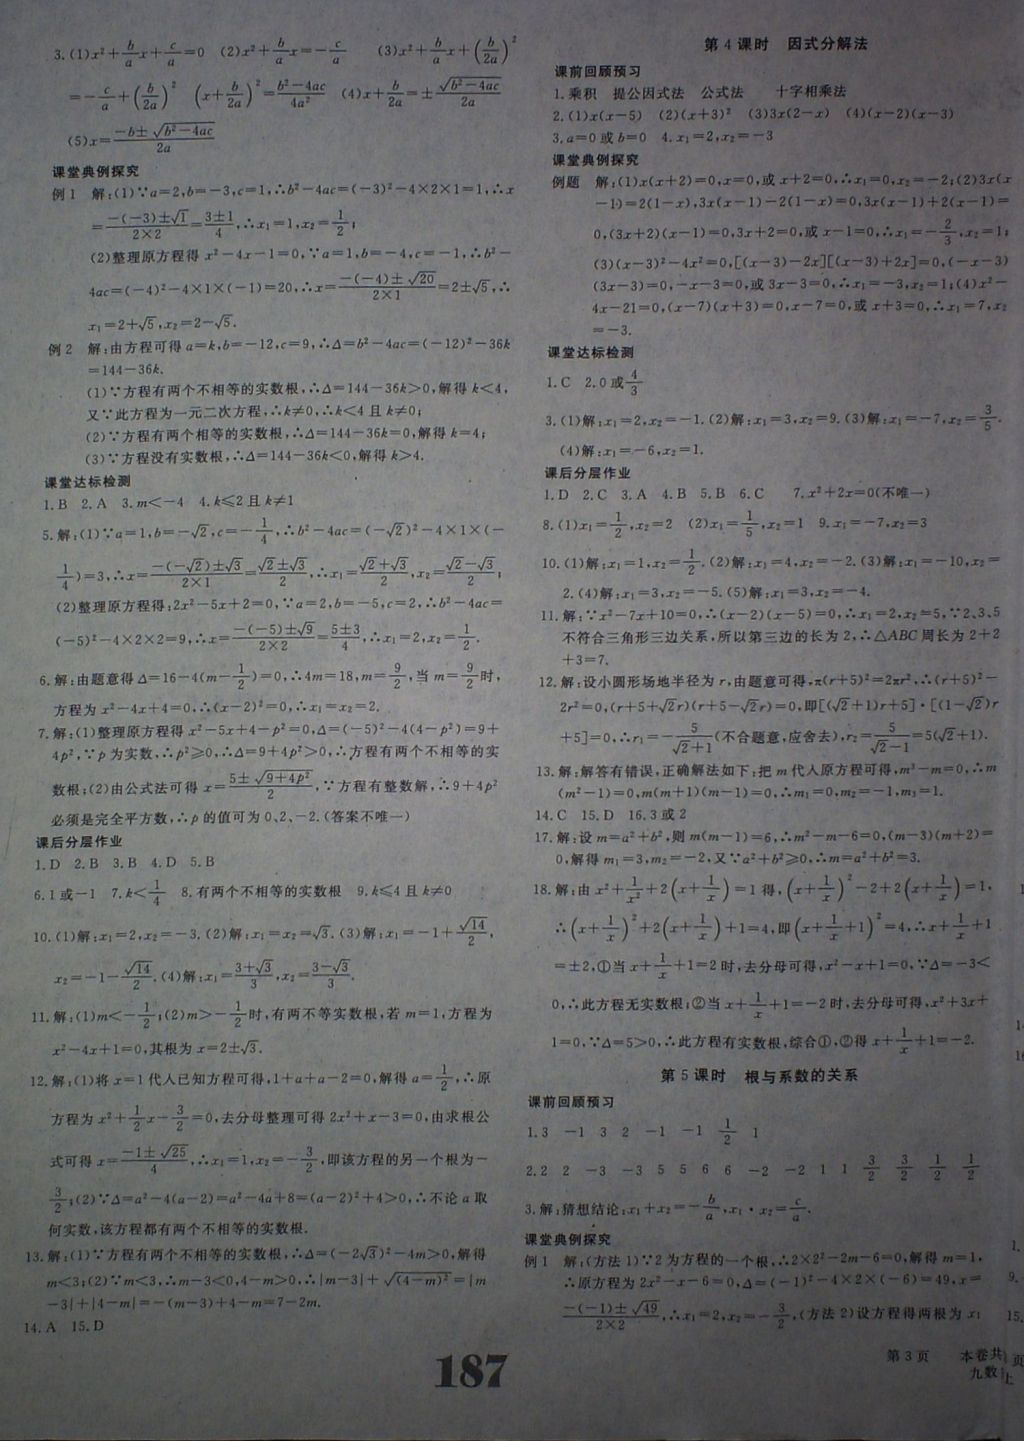 3.(1)x²+b/a x+c/a=0 (2)x²+b/a x=-c/a (3)x²+b/a x+(b/2a)²
=-c/a+(b/2a)² (x+b/2a)²=(b²-4ac)/4a² (4)x+b/2a=±√(b²-4ac)/2a
(5)x=(-b±√(b²-4ac))/2a
课堂典例探究
例1 解:(1)∵a=2,b=-3,c=1,∴b²-4ac=(-3)²-4×2×1=1,∴x
=(-(-3)±√1)/(2×2)=(3±1)/4,∴x₁=1,x₂=1/2;
(2)整理原方程得 x²-4x-1=0,∵a=1,b=-4,c=-1,∴b²-
4ac=(-4)²-4×1×(-1)=20,∴x=(-(-4)±√20)/(2×1)=2±√5,∴
x₁=2+√5,x₂=2-√5.
例2 解:由方程可得 a=k,b=-12,c=9,∴Δ=b²-4ac=(-12)²-36k
=144-36k.
(1)∵方程有两个不相等的实数根,∴Δ=144-36k>0,解得 k<4,
又∵此方程为一元二次方程,∴k≠0,∴k<4 且 k≠0;
(2)∵方程有两个相等的实数根,∴Δ=144-36k=0,解得 k=4;
(3)∵方程没有实数根,∴Δ=144-36k<0,解得 k>4.
课堂达标检测
1.B 2.A 3.m<-4 4.k≤2 且 k≠1
5.解:(1)∵a=1,b=-√2,c=-1/4,∴b²-4ac=(-√2)²-4×1×(-
1/4)=3,∴x=(-(-√2)±√3)/(2×1)=(√2±√3)/2,∴x₁=(√2+√3)/2,x₂=(√2-√3)/2;
(2)整理原方程得:2x²-5x+2=0,∵a=2,b=-5,c=2,∴b²-4ac=
(-5)²-4×2×2=9,∴x=(-(-5)±√9)/(2×2)=(5±3)/4,∴x₁=2,x₂=1/2.
6.解:由题意得 Δ=16-4(m-1/2)=0,∴4m=18,m=9/2,当 m=9/2时,
方程为 x²-4x+4=0,∴(x-2)²=0,∴x₁=x₂=2.
7.解:(1)整理原方程得 x²-5x+4-p²=0,Δ=(-5)²-4(4-p²)=9+
4p²,∵p 为实数,∴p²≥0,∴Δ=9+4p²>0,∴方程有两个不相等的实
数根;(2)由公式法可得 x=(5±√(9+4p²))/2,∵方程有整数解,∴9+4p²
必须是完全平方数,∴p 的值可为 0、2、-2.(答案不唯一)
课后分层作业
1.D 2.B 3.B 4.D 5.B
6.1 或-1 7.k<1/4 8.有两个不相等的实数根 9.k≤4 且 k≠0
10.(1)解:x₁=2,x₂=-3.(2)解:x₁=x₂=√3.(3)解:x₁=-1+√14/2,
x₂=-1-√14/2.(4)解:x₁=(3+√3)/3,x₂=(3-√3)/3.
11.解:(1)m<-1/2;(2)m>-1/2时,有两不等实数根,若 m=1,方程为
x²-4x+1=0,其根为 x=2±√3.
12.解:(1)将 x=1 代人已知方程可得,1+a+a-2=0,解得 a=1/2,∴原
方程为 x²+1/2x-3/2=0,去分母整理可得 2x²+x-3=0,由求根公
式可得 x=(-1±√25)/4,∴x₁=1,x₂=-3/2,即该方程的另一个根为-
3/2;(2)∵Δ=a²-4(a-2)=a²-4a+8=(a-2)²+4>0,∴不论 a 取
何实数,该方程都有两个不相等的实数根.
13.解:(1)∵方程有两个不相等的实数根,∴Δ=(-2√3)²-4m>0,解得
m<3;(2)∵m<3,∴m-3<0,4-m>0,∴|m-3|+√(4-m)²=|m
-3|+|4-m|=-(m-3)+4-m=7-2m.
14.A 15.D
第 4 课时 因式分解法
课前回顾预习
1.乘积 提公因式法 公式法 十字相乘法
2.(1)x(x-5) (2)(x+3)² (3)3x(2-x) (4)(x-2)(x-3)
3.a=0 或 b=0 4.x₁=2,x₂=-3
课堂典例探究
例题 解:(1)x(x+2)=0,x=0,或 x+2=0,∴x₁=0,x₂=-2;(2)3x(x
-1)=2(1-x),3x(x-1)-2(1-x)=0,3x(x-1)+2(x-1)=
0,(3x+2)(x-1)=0,3x+2=0,或 x-1=0,∴x₁=-2/3,x₂=1;
(3)(x-3)²-4x²=0,[(x-3)-2x][(x-3)+2x]=0,(-x-3)
(3x-3)=0,-x-3=0,或 3x-3=0,∴x₁=-3,x₂=1;(4)x²-
4x-21=0,(x-7)(x+3)=0,x-7=0,或 x+3=0,∴x₁=7,x₂
=-3.
课堂达标检测
1.C 2.0 或4/3
3.(1)解:x₁=2,x₂=-1.(2)解:x₁=3,x₂=9.(3)解:x₁=-7,x₂=3/5.
(4)解:x₁=-6,x₂=1.
课后分层作业
1.D 2.C 3.A 4.B 5.B 6.C 7.x²+2x=0(不唯一)
8.(1)x₁=1/2,x₂=2 (2)x₁=1/5,x₂=1 9.x₁=-7,x₂=3
10.(1)解:x₁=1,x₂=1/2.(2)解:x₁=4,x₂=-2.(3)解:x₁=-10,x₂=
2.(4)解:x₁=3,x₂=-5.(5)解:x₁=3,x₂=-4.
11.解:∵x²-7x+10=0,∴(x-2)(x-5)=0,∴x₁=2,x₂=5,∵2、3、5
不符合三角形三边关系,所以第三边的长为 2,∴△ABC 周长为 2+2
+3=7.
12.解:设小圆形场地半径为 r,由题意可得,π(r+5)²=2πr²,∴(r+5)²-
2r²=0,(r+5+√2r)(r+5-√2r)=0,即[(√2+1)r+5]·[(1-√2)r
+5]=0,∴r₁=-5/(√2+1)(不合题意,应舍去),r₂=5/(√2-1)=5(√2+1).
13.解:解答有错误,正确解法如下:把 m 代人原方程可得,m³-m=0,∴m
(m²-1)=0,m(m+1)(m-1)=0,∴m₁=0,m₂=-1,m₃=1.
14.C 15.D 16.3 或 2
17.解:设 m=a²+b²,则 m(m-1)=6,∴m²-m-6=0,(m-3)(m+2)=
0,解得 m₁=3,m₂=-2,又∵a²+b²≥0,∴m=a²+b²=3.
18.解:由 x²+1/x²+2(x+1/x)=1 得,(x+1/x)²-2+2(x+1/x)=1,
∴(x+1/x)²+2(x+1/x)+1=4,即(x+1/x+1)²=4,∴x+1/x+1
=±2,①当 x+1/x+1=2 时,去分母可得,x²-x+1=0,∵Δ=-3<
0,∴此方程无实数根;②当 x+1/x+1=-2 时,去分母可得,x²+3x+
1=0,∵Δ=5>0,∴此方程有实数根,综合①,②得 x+1/x+1=-2.
第 5 课时 根与系数的关系
课前回顾预习
1.3 -1 3 2 -1 -1 1/2 1
2.2 2 -3 -3 5 5 6 6 -2 -2 1 1 3/2 3/2 1/2 1/2
3.解:猜想结论:x₁+x₂=-b/a,x₁·x₂=c/a.
课堂典例探究
例1 解:(方法 1)∵2 为方程的一个根,∴2×2²-2m-6=0,解得 m=1,
∴原方程为 2x²-x-6=0,Δ=(-1)²-4×2×(-6)=49,x=
(-(-1)±√49)/(2×2),∴x₁=2,x₂=-3/2,(方法 2)设方程得两根为 x₁
187
第 3 页 本卷共
九数
页
上
1.
9.
15.